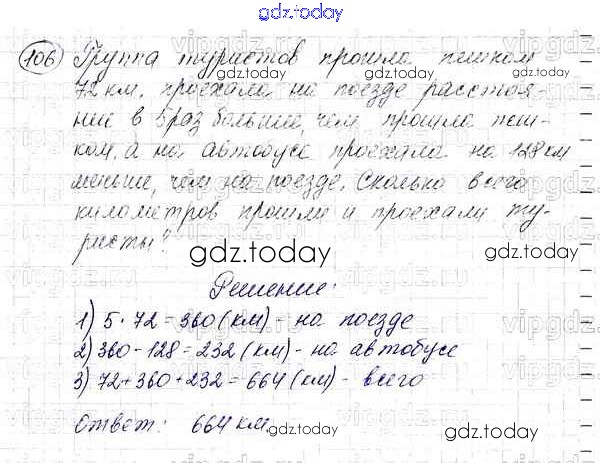 gdz.today
106 Группа туристов прошла пешком
gdz.today gdz.today
72 км, проехала на поезде расстоя-
ние в 5 раз больше, чем прошла пеш-
gdz.today gdz.today
ком, а на автобусе проехала на 128 км
меньше, чем на поезде. Сколько всего
километров прошли и проехали ту-
gdz.today gdz.today
ристы?
Решение:
1) 5 · 72 = 360 (км) - на поезде
2) 360 - 128 = 232 (км) - на автобусе
3) 72 + 360 + 232 = 664 (км) - всего
Ответ: 664 км.
gdz.today gdz.today